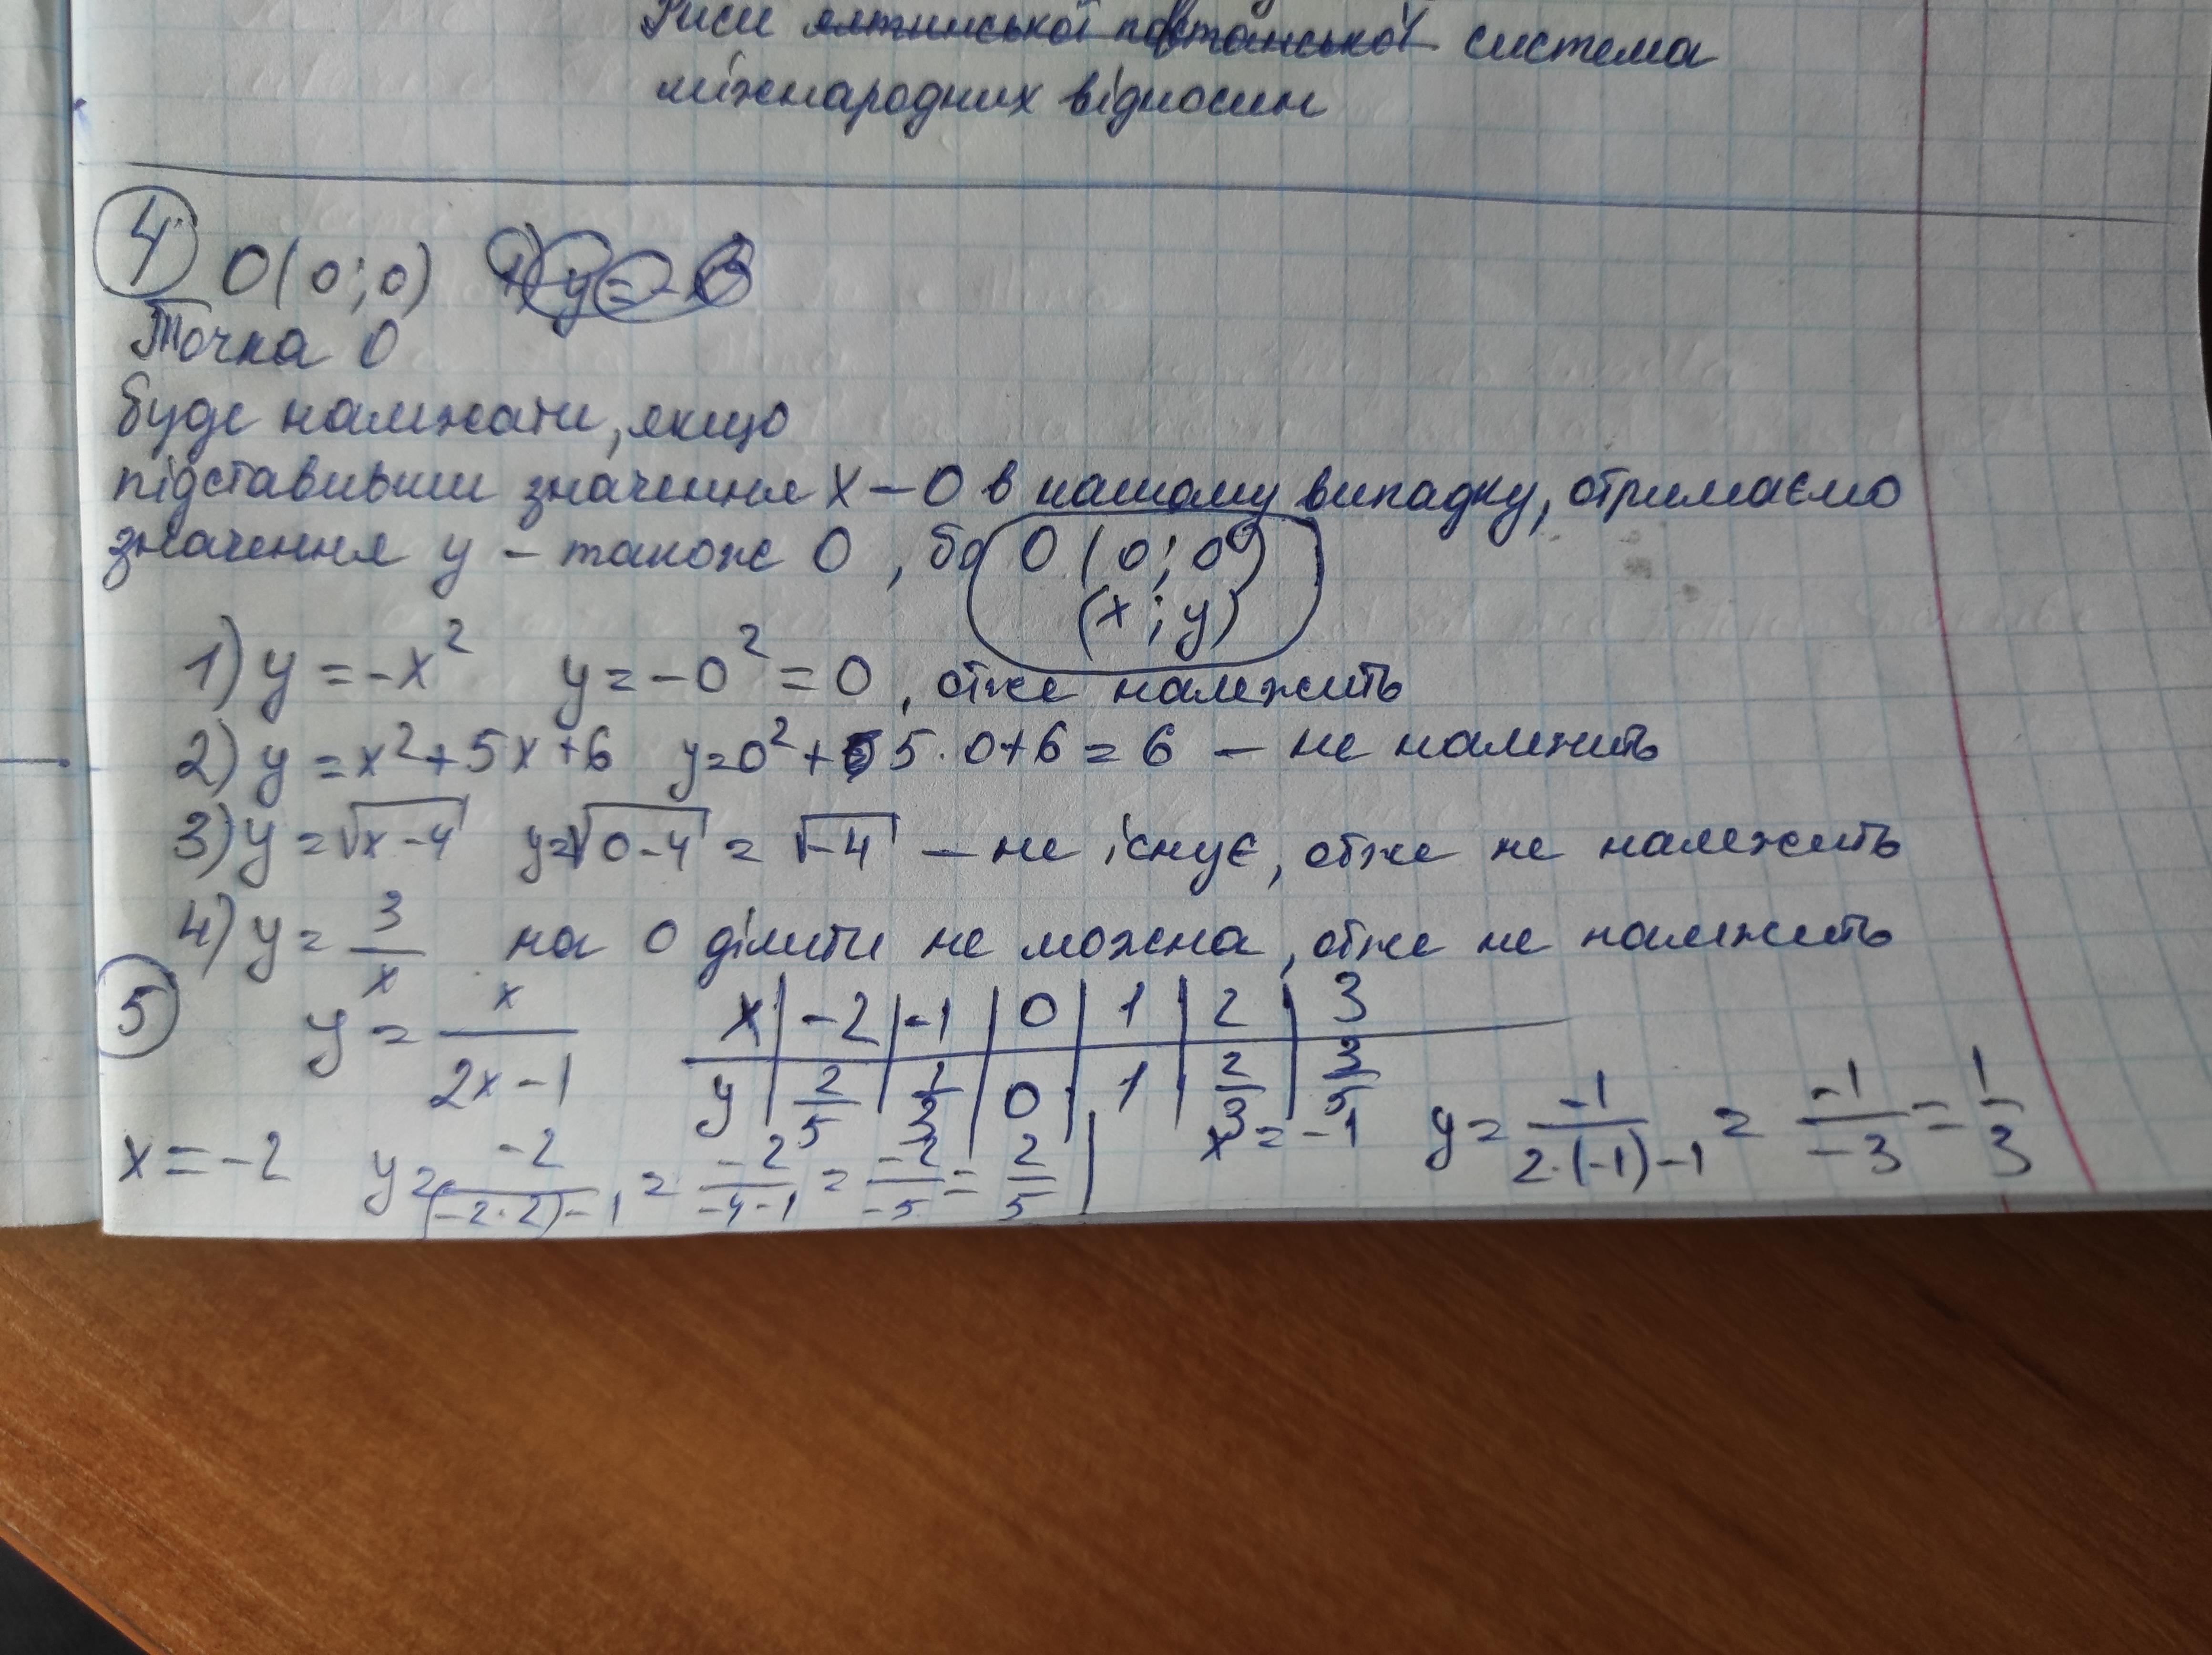 Риси ялтинської потсданської система
міжнародних відносин
4 O(0;0)
Точка О
буде належати, якщо
підставивши значення x – 0 в нашому випадку, отримаємо
значення y – також 0, бо O (0;0)
(x;y)
1) y = -x² y = -0² = 0, отже належить
2) y = x²+5x+6 y=0²+5·0+6=6 – не належить
3) y = √x-4 y=√0-4 = √-4 – не існує, отже не належить
4) y = 3/x на 0 ділити не можна, отже не належить
5 y = x/(2x-1)
x | -2 | -1 | 0 | 1 | 2 | 3
y | 2/5 | 1/3 | 0 | 1 | 2/3 | 3/5
x = -2 y = -2/((-2·2)-1) = -2/(-4-1) = -2/-5 = 2/5 | x = -1 y = -1/(2·(-1)-1) = -1/-3 = 1/3